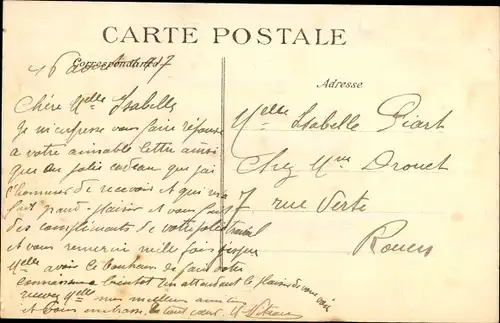 CARTE POSTALE
Correspondance
Adresse
Chère Melle Isabelle
Je m'empresse vous faire réponse
a votre aimable lettre ainsi
que au jolie cadeau que jai
l'honneur de recevoir et qui me
fait grand plaisir et vous fait
des compliments de votre jolie travail
et vous remercie mille fois
Melle avoir le bonheur de faire votre
connaissance bientot en attendant le plaisir de vous voir
recevez Melle mes meilleurs amitiés
et vous embrasse de tout cœur
Melle Isabelle Piart
Chez Mme Drouet
7 rue Verte
Rouen